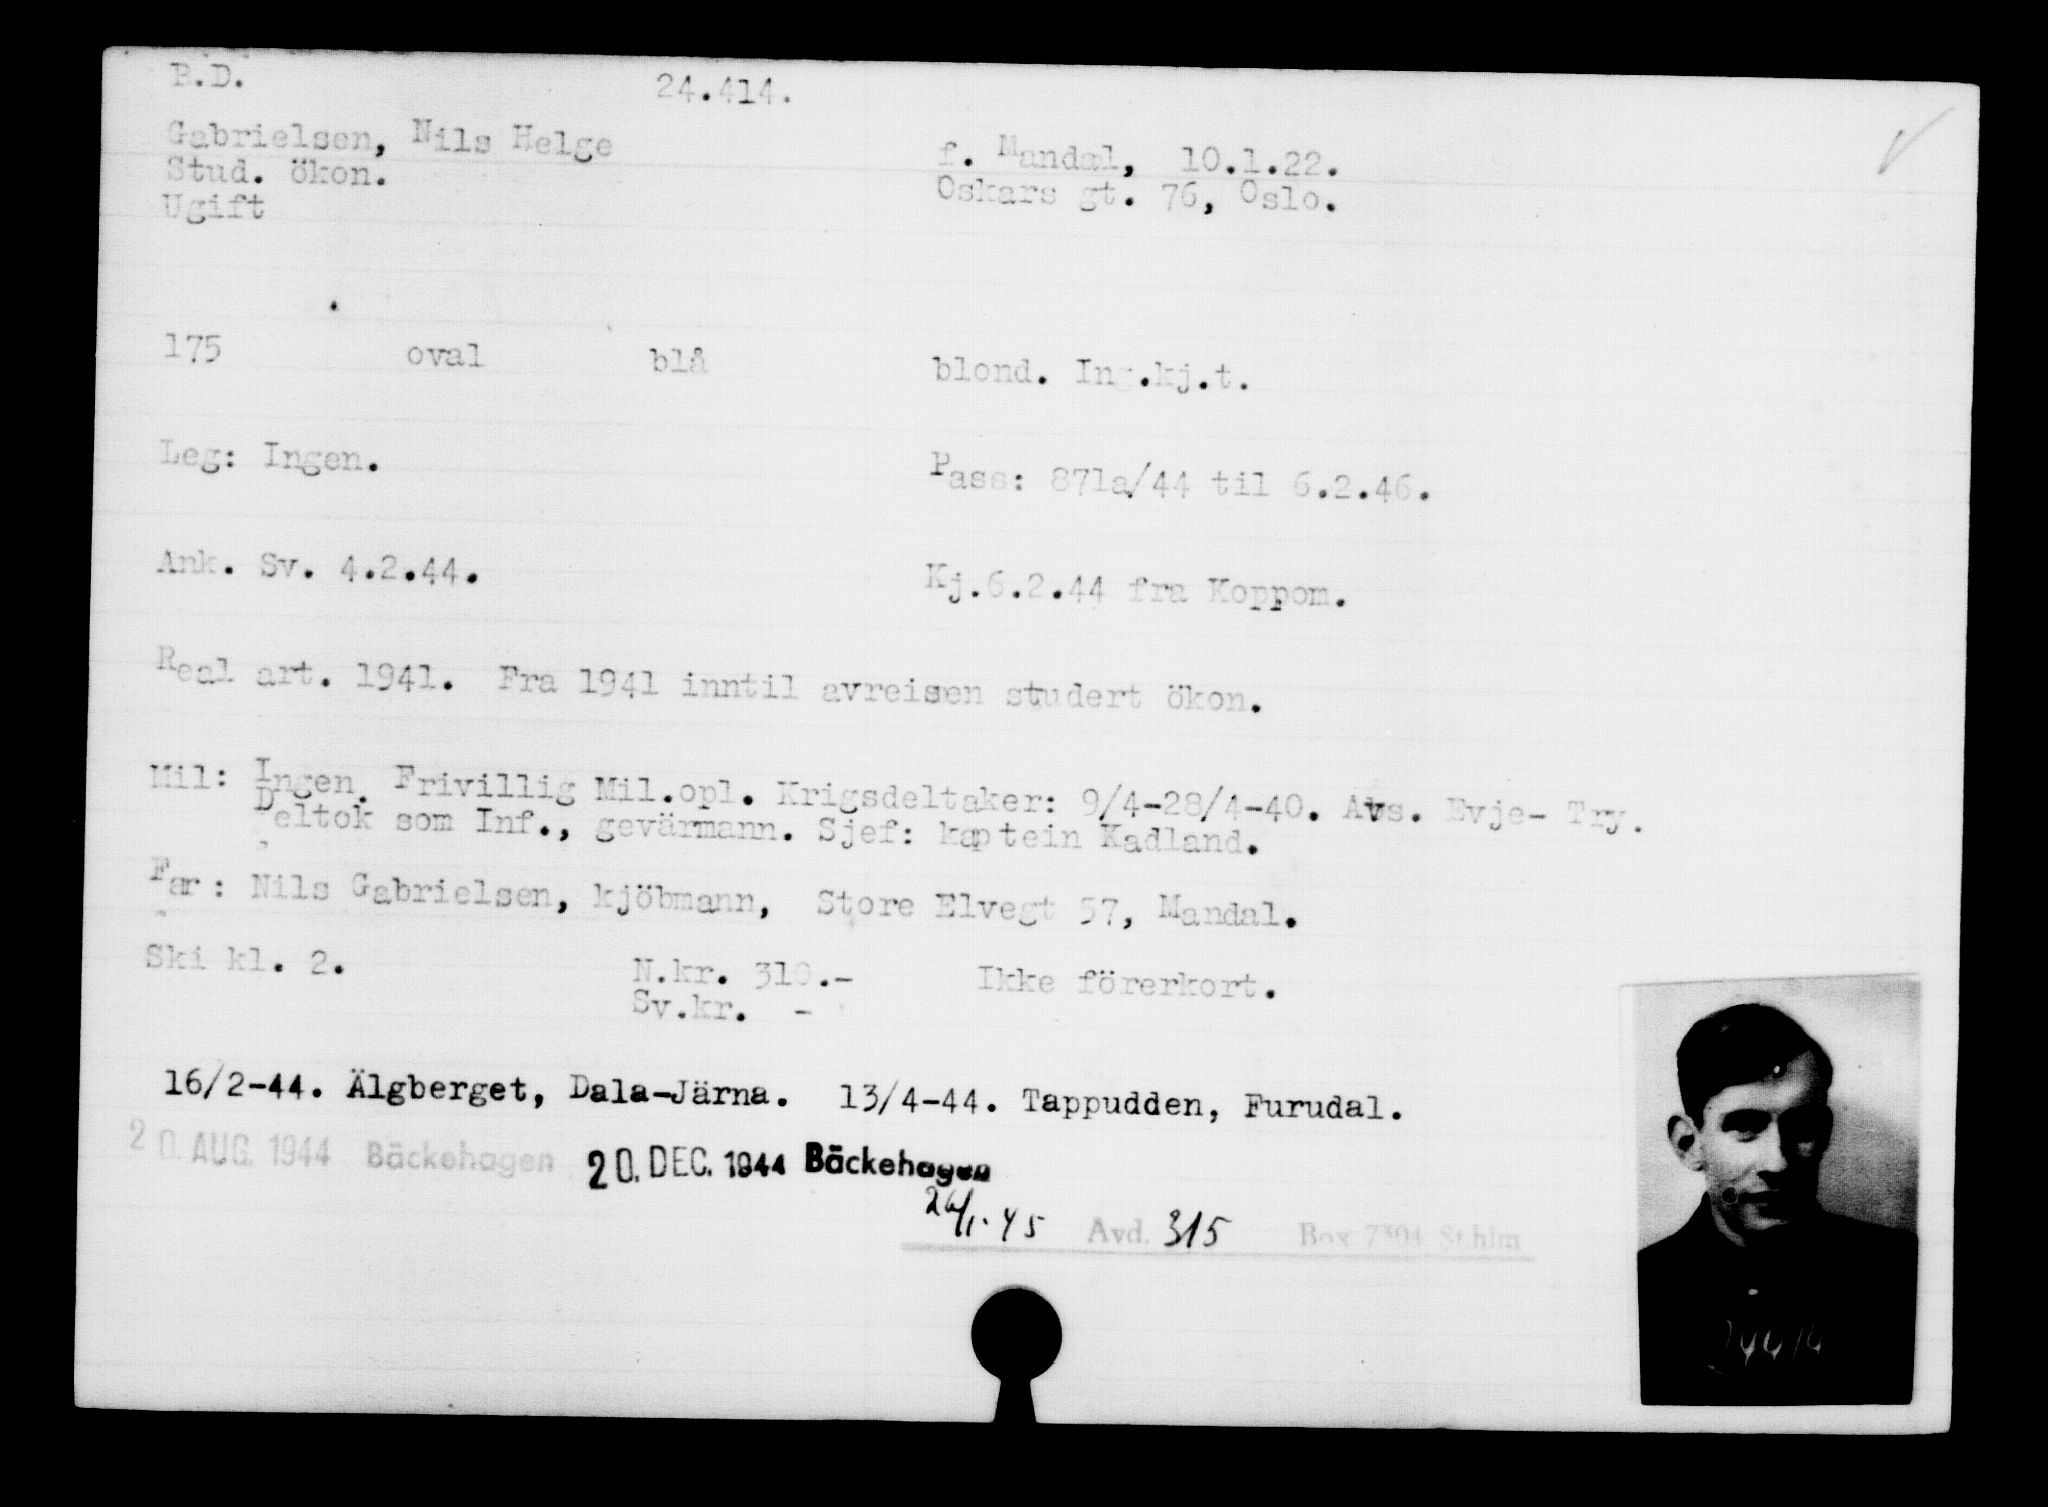 B.D. 24.414.
Gabrielsen, Nils Helge f. Mandal, 10.1.22.
Stud. ökon. Oskars gt. 76, Oslo.
Ugift
175 oval blå blond. Ing.kj.t.
Leg: Ingen. Pass: 871a/44 til 6.2.46.
Ank. Sv. 4.2.44. Kj.6.2.44 fra Koppom.
Real art. 1941. Fra 1941 inntil avreisen studert ökon.
Mil: Ingen. Frivillig Mil.opl. Krigsdeltaker: 9/4-28/4-40. Avs. Evje- Try.
Deltok som Inf., gevärmann. Sjef: kaptein Kadland.
Far: Nils Gabrielsen, kjöbmann, Store Elvegt 57, Mandal.
Ski kl. 2. N.kr. 310.- Ikke förerkort.
Sv.kr. -
16/2-44. Älgberget, Dala-Järna. 13/4-44. Tappudden, Furudal.
20. AUG. 1944 Bäckehagen 20. DEC. 1944 Bäckehagen
26/1-45 Avd. 315 Box 7304 Sthlm
24414